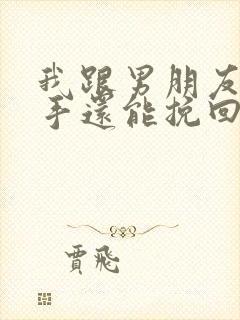 我跟男朋友
手還能挽回
賈飛